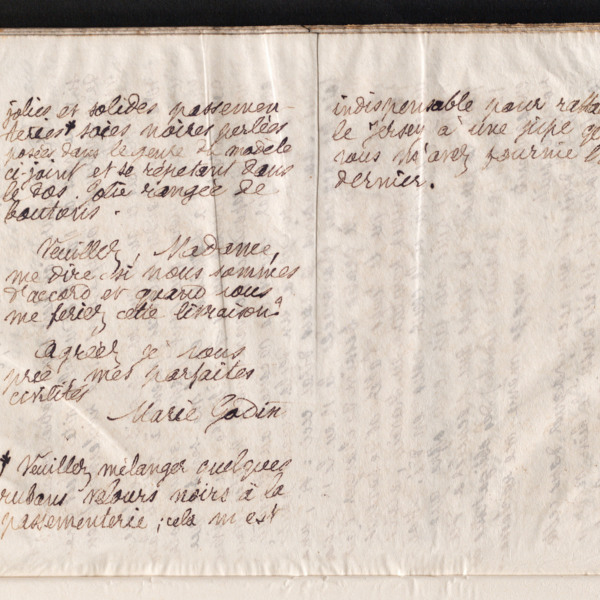 jolies et solides passemen-
teries* soies noires perlées
posées dans le genre du modèle
ci-joint et se répétant dans
le dos. Jolie rangée de
boutons.
Veuillez, Madame,
me dire si nous sommes
d'accord et quand vous
me feriez cette livraison?
Agréez je vous
prie, mes parfaites
civilités
Marie Godin
* Veuillez mélanger quelques
rubans velours noirs à la
passementerie; cela m'est
indispensable pour ratta
le jersey à une jupe q
vous m'avez fournie l
dernier.